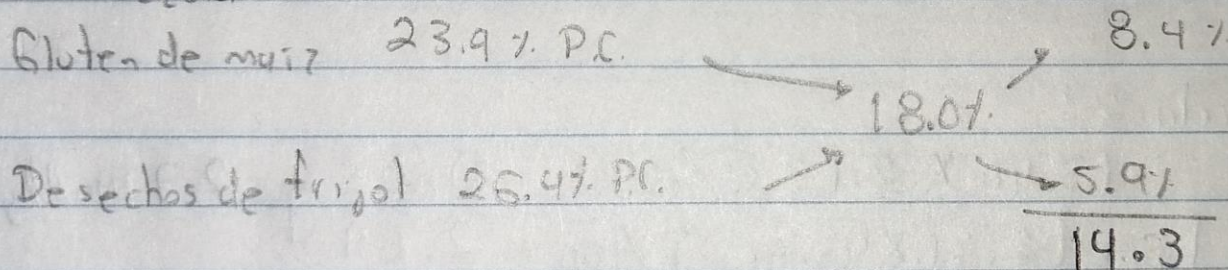 Gluten de maiz 23.9 % P.C. 8.4 %
18.0 %
Desechos de frijol 26.4 % P.C. 5.9 %
14.3